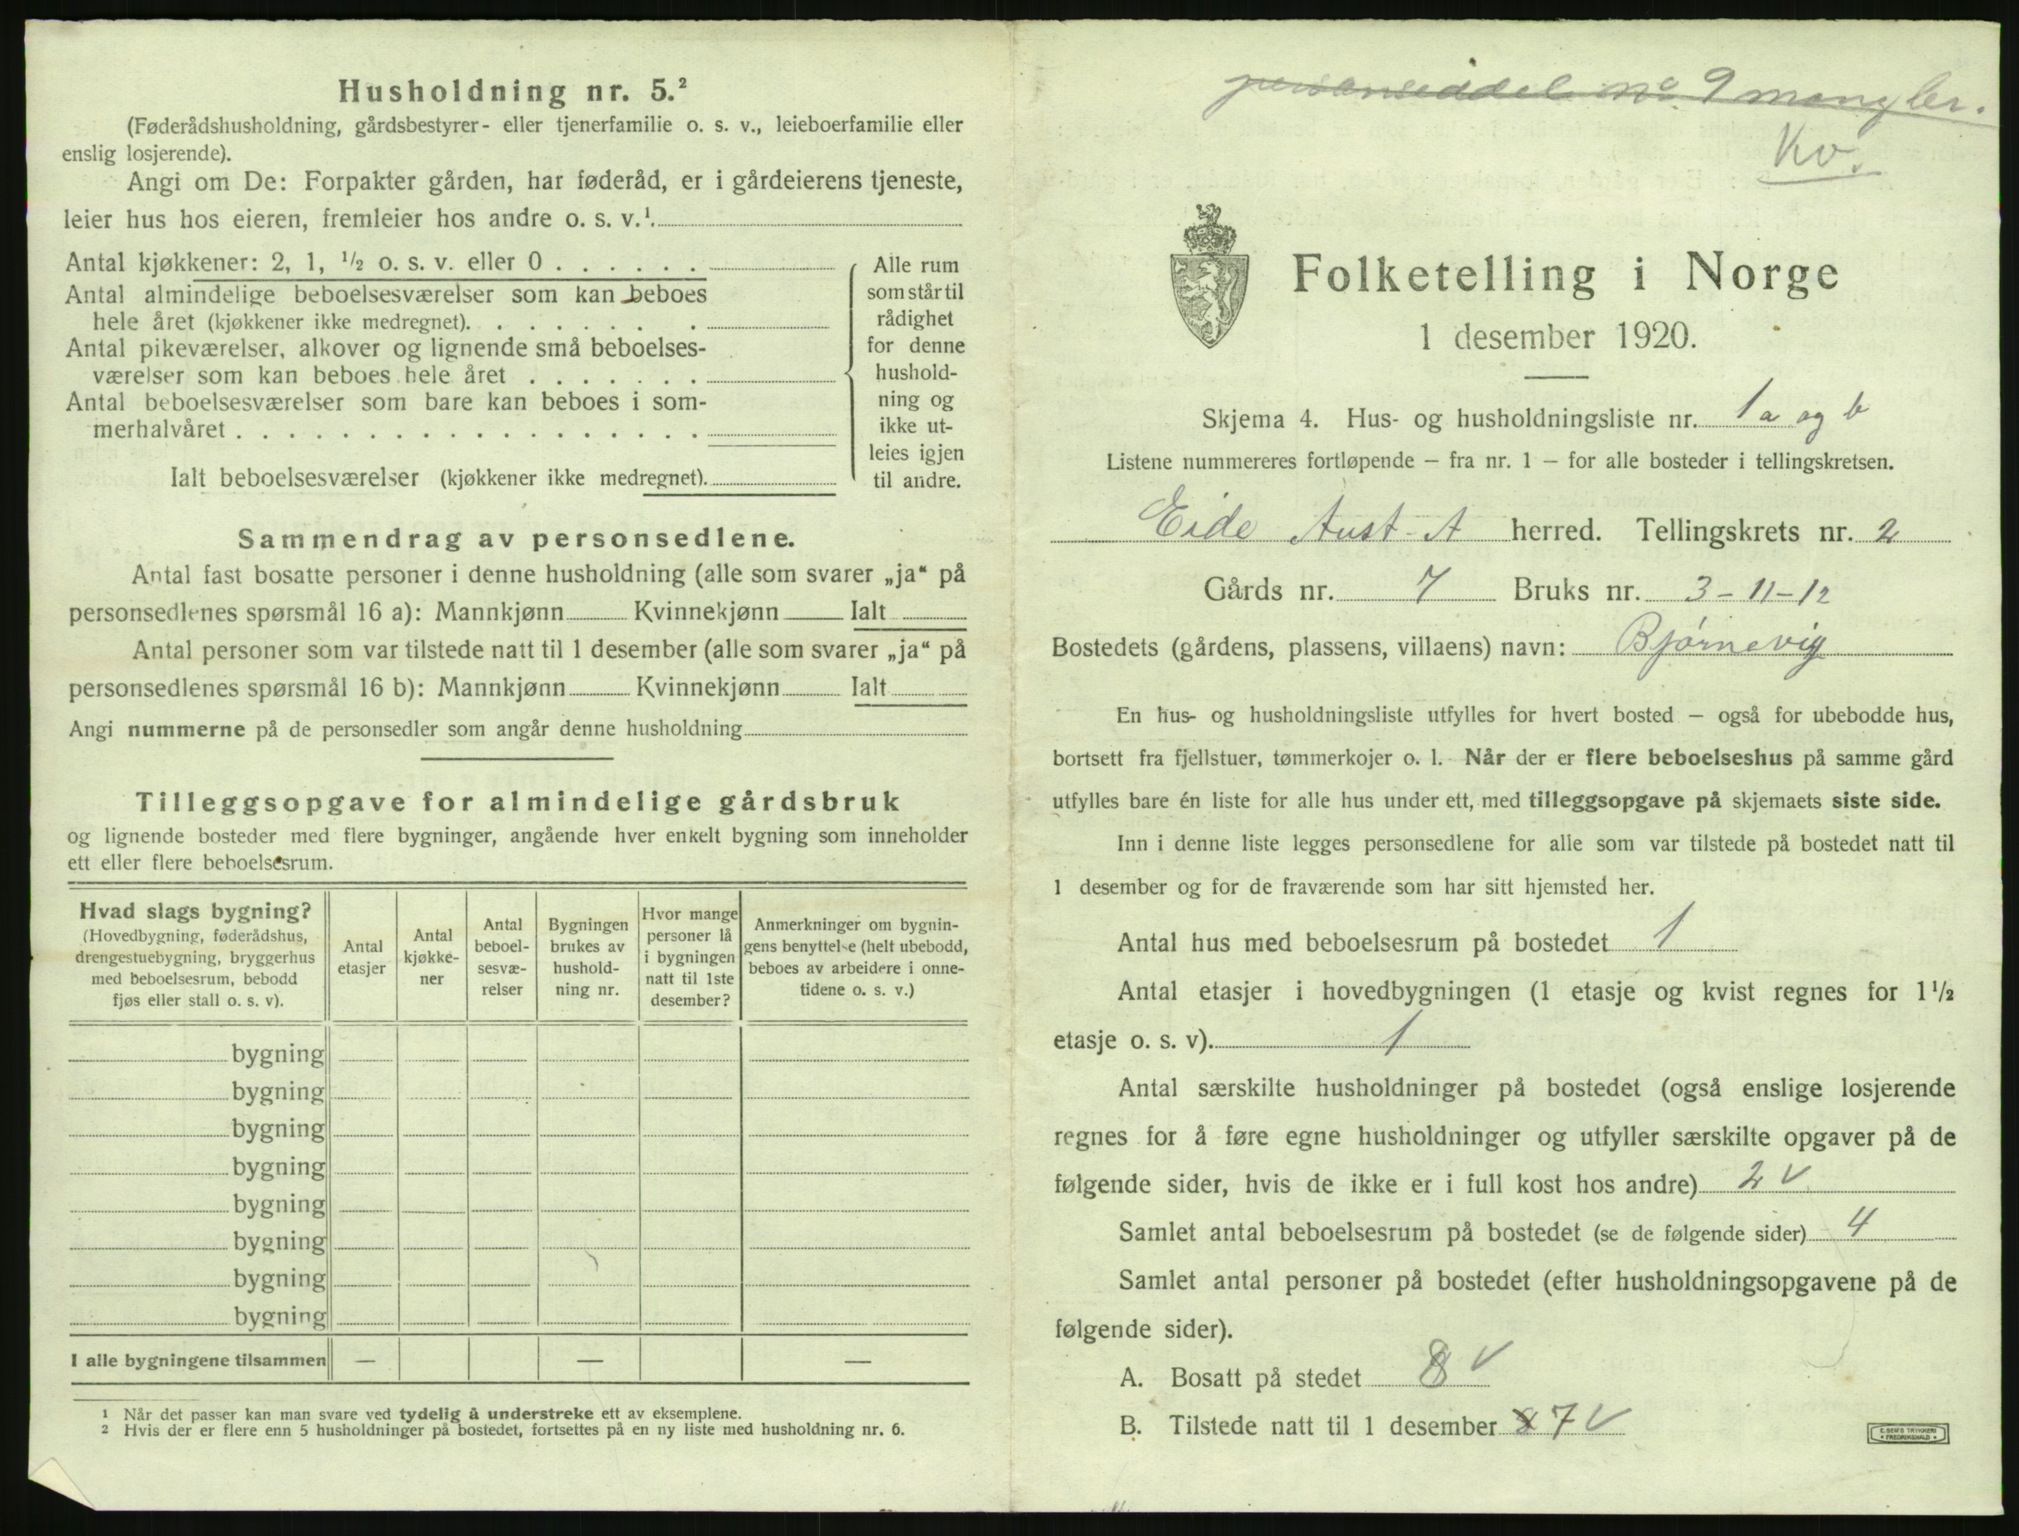 Husholdning nr. 5.²
(Føderådshusholdning, gårdsbestyrer- eller tjenerfamilie o. s. v., leieboerfamilie eller
enslig losjerende).
Angi om De: Forpakter gården, har føderåd, er i gårdeierens tjeneste,
leier hus hos eieren, fremleier hos andre o. s. v.¹
Antal kjøkkener: 2, 1, ½ o. s. v. eller 0 . . . . . .
Antal almindelige beboelsesværelser som kan beboes
hele året (kjøkkener ikke medregnet). . . . . . . .
Antal pikeværelser, alkover og lignende små beboelses-
værelser som kan beboes hele året . . . . . . .
Antal beboelsesværelser som bare kan beboes i som-
merhalvåret . . . . . . . . . . . . . . . . . .
Ialt beboelsesværelser (kjøkkener ikke medregnet).
Alle rum
som står til
rådighet
for denne
hushold-
ning og
ikke ut-
leies igjen
til andre.
Sammendrag av personsedlene.
Antal fast bosatte personer i denne husholdning (alle som svarer „ja“ på
personsedlenes spørsmål 16 a): Mannkjønn Kvinnekjønn Ialt
Antal personer som var tilstede natt til 1 desember (alle som svarer „ja“ på
personsedlenes spørsmål 16 b): Mannkjønn Kvinnekjønn Ialt
Angi nummerne på de personsedler som angår denne husholdning
Tilleggsopgave for almindelige gårdsbruk
og lignende bosteder med flere bygninger, angående hver enkelt bygning som inneholder
ett eller flere beboelsesrum.
Hvad slags bygning?
(Hovedbygning, føderådshus,
drengestuebygning, bryggerhus
med beboelsesrum, bebodd
fjøs eller stall o. s. v).
Antal
etasjer
Antal
kjøkke-
ner
Antal
beboel-
sesvæ-
relser
Bygningen
brukes av
hushold-
ning nr.
Hvor mange
personer lå
i bygningen
natt til 1ste
desember?
Anmerkninger om bygnin-
gens benyttelse (helt ubebodd,
beboes av arbeidere i onne-
tidene o. s. v.)
bygning
bygning
bygning
bygning
bygning
bygning
bygning
bygning
I alle bygningene tilsammen — — —
¹ Når det passer kan man svare ved tydelig å understreke ett av eksemplene.
² Hvis der er flere enn 5 husholdninger på bostedet, fortsettes på en ny liste med husholdning nr. 6.
personseddel no 9 mangler.
Kv.
Folketelling i Norge
1 desember 1920.
Skjema 4. Hus- og husholdningsliste nr. 1a og b
Listene nummereres fortløpende – fra nr. 1 – for alle bosteder i tellingskretsen.
Eide Aust-A herred. Tellingskrets nr. 2
Gårds nr. 7 Bruks nr. 3-11-12
Bostedets (gårdens, plassens, villaens) navn: Bjørnevig
En hus- og husholdningsliste utfylles for hvert bosted – også for ubebodde hus,
bortsett fra fjellstuer, tømmerkojer o. l. Når der er flere beboelseshus på samme gård
utfylles bare én liste for alle hus under ett, med tilleggsopgave på skjemaets siste side.
Inn i denne liste legges personsedlene for alle som var tilstede på bostedet natt til
1 desember og for de fraværende som har sitt hjemsted her.
Antal hus med beboelsesrum på bostedet 1
Antal etasjer i hovedbygningen (1 etasje og kvist regnes for 1½
etasje o. s. v). 1
Antal særskilte husholdninger på bostedet (også enslige losjerende
regnes for å føre egne husholdninger og utfyller særskilte opgaver på de
følgende sider, hvis de ikke er i full kost hos andre) 2 v
Samlet antal beboelsesrum på bostedet (se de følgende sider) 4
Samlet antal personer på bostedet (efter husholdningsopgavene på de
følgende sider).
A. Bosatt på stedet 8 v
B. Tilstede natt til 1 desember 8 7 v
E. SEMS TRYKKERI
FREDRIKSHALD